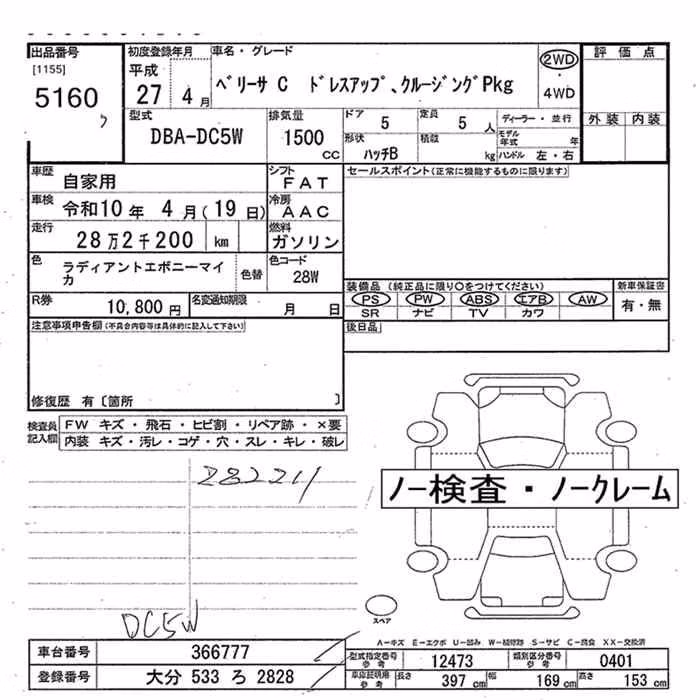 出品番号
[1155]
5160
初度登録年月
平成
27 4 月
車名・グレード
ベリーサ C ドレスアップ、クルージングPkg
2WD
・
4WD
評価点
外装 内装
型式
DBA-DC5W
排気量
1500
CC
ドア
5
定員
5 人
形状
ハッチB
積載
kg
ディーラー・並行
モデル年式 年
ハンドル 左・右
車歴
自家用
シフト
FAT
セールスポイント(正常に機能するものに限ります)
車検
令和10 年 4 月(19 日)
冷房
AAC
走行
28 万 2 千 200 km
燃料
ガソリン
色
ラディアントエボニーマイカ
色替
色コード
28W
装備品(純正品に限り○をつけてください)
PS PW ABS エアB AW
SR ナビ TV カワ
新車保証書
有・無
R券
10,800 円
名変通知期限
月 日
後日品
注意事項申告欄(不具合内容等は具体的に記入して下さい)
修復歴 有〔箇所 〕
検査員記入欄
FW キズ・飛石・ヒビ割・リペア跡・×要
内装 キズ・汚レ・コゲ・穴・スレ・キレ・破レ
282211
ノー検査・ノークレーム
スペア
DC5W
A-キズ E-エクボ U-凹み W-補修跡 S-サビ C-腐食 XX-交換済
車台番号
366777
登録番号
大分 533 ろ 2828
型式指定番号
参考
12473
類別区分番号
参考
0401
車庫証明用
参考
長さ 397 cm
幅 169 cm
高さ 153 cm